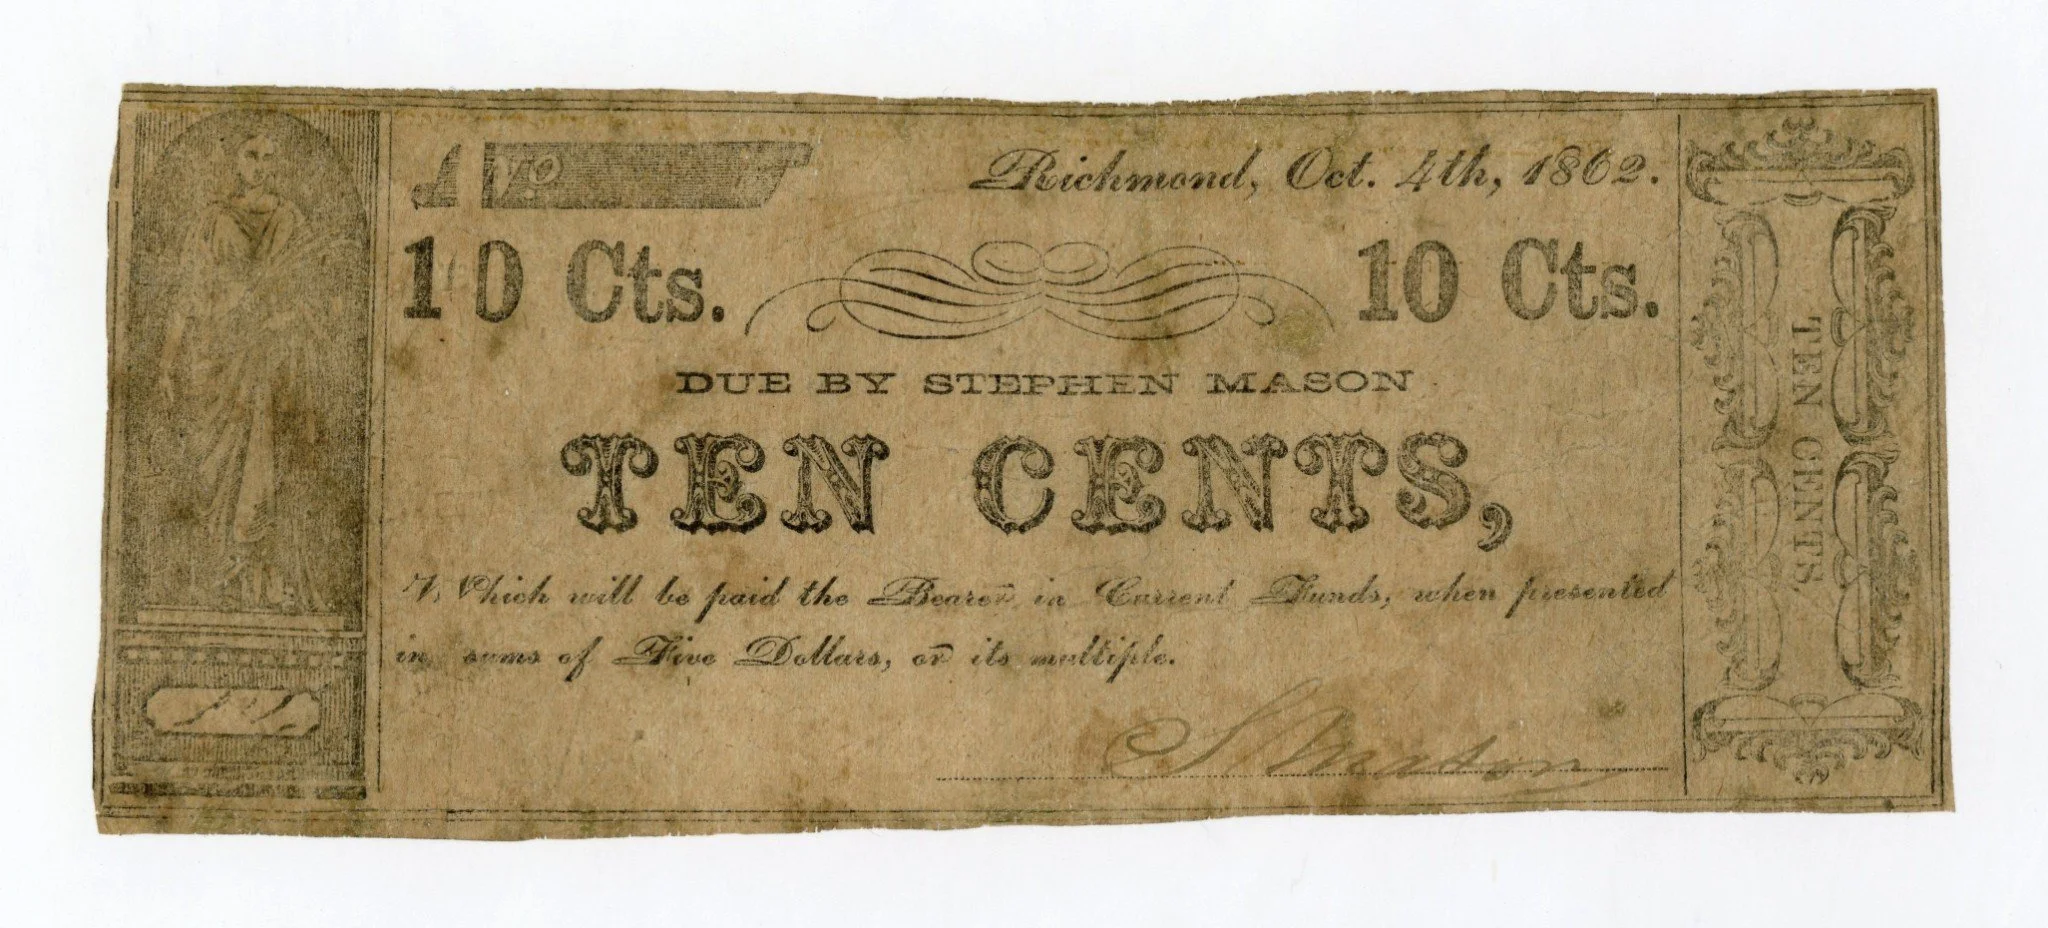 No
Richmond, Oct. 4th, 1862.
10 Cts.
10 Cts.
DUE BY STEPHEN MASON
TEN CENTS,
Which will be paid the Bearer in Current Funds, when presented
in sums of Five Dollars, or its multiple.
S. Mason
TEN CENTS,